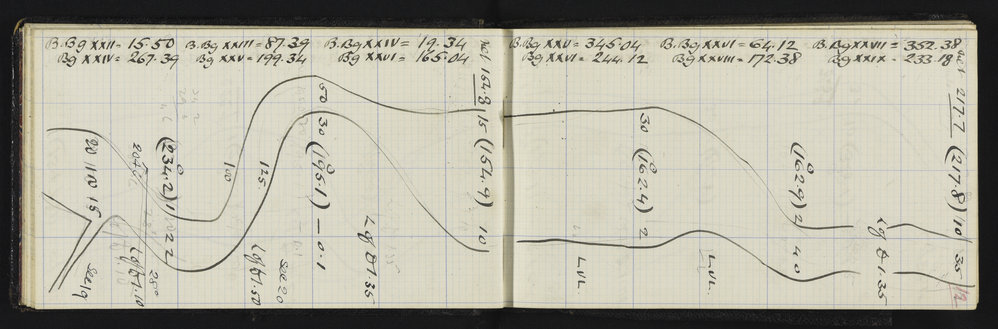 B.Bg XXII = 15.50 B.Bg XXIII = 87.39 B.Bg XXIV = 19.34
Bg XXIV = 267.39 Bg XXV = 199.34 Bg XXVI = 165.04
154.8
15 (154.4) 10
50
30 (195.1) — 0.1
Lg & 1.35
100
125
see 20
Lg & 1.50
(234.2) 1
22
20 110 15
28°
Lg & 1.10
see 19
B.Bg XXV = 345.04 B.Bg XXVI = 64.12 B.Bg XXVII = 352.38
Bg XXVI = 244.12 Bg XXVIII = 172.38 Bg XXIX = 233.18
217.7
(217.8) 10
35
30 (162.4) 2
(162.9) 2
40
Lg & 1.35
LVL
LVL.